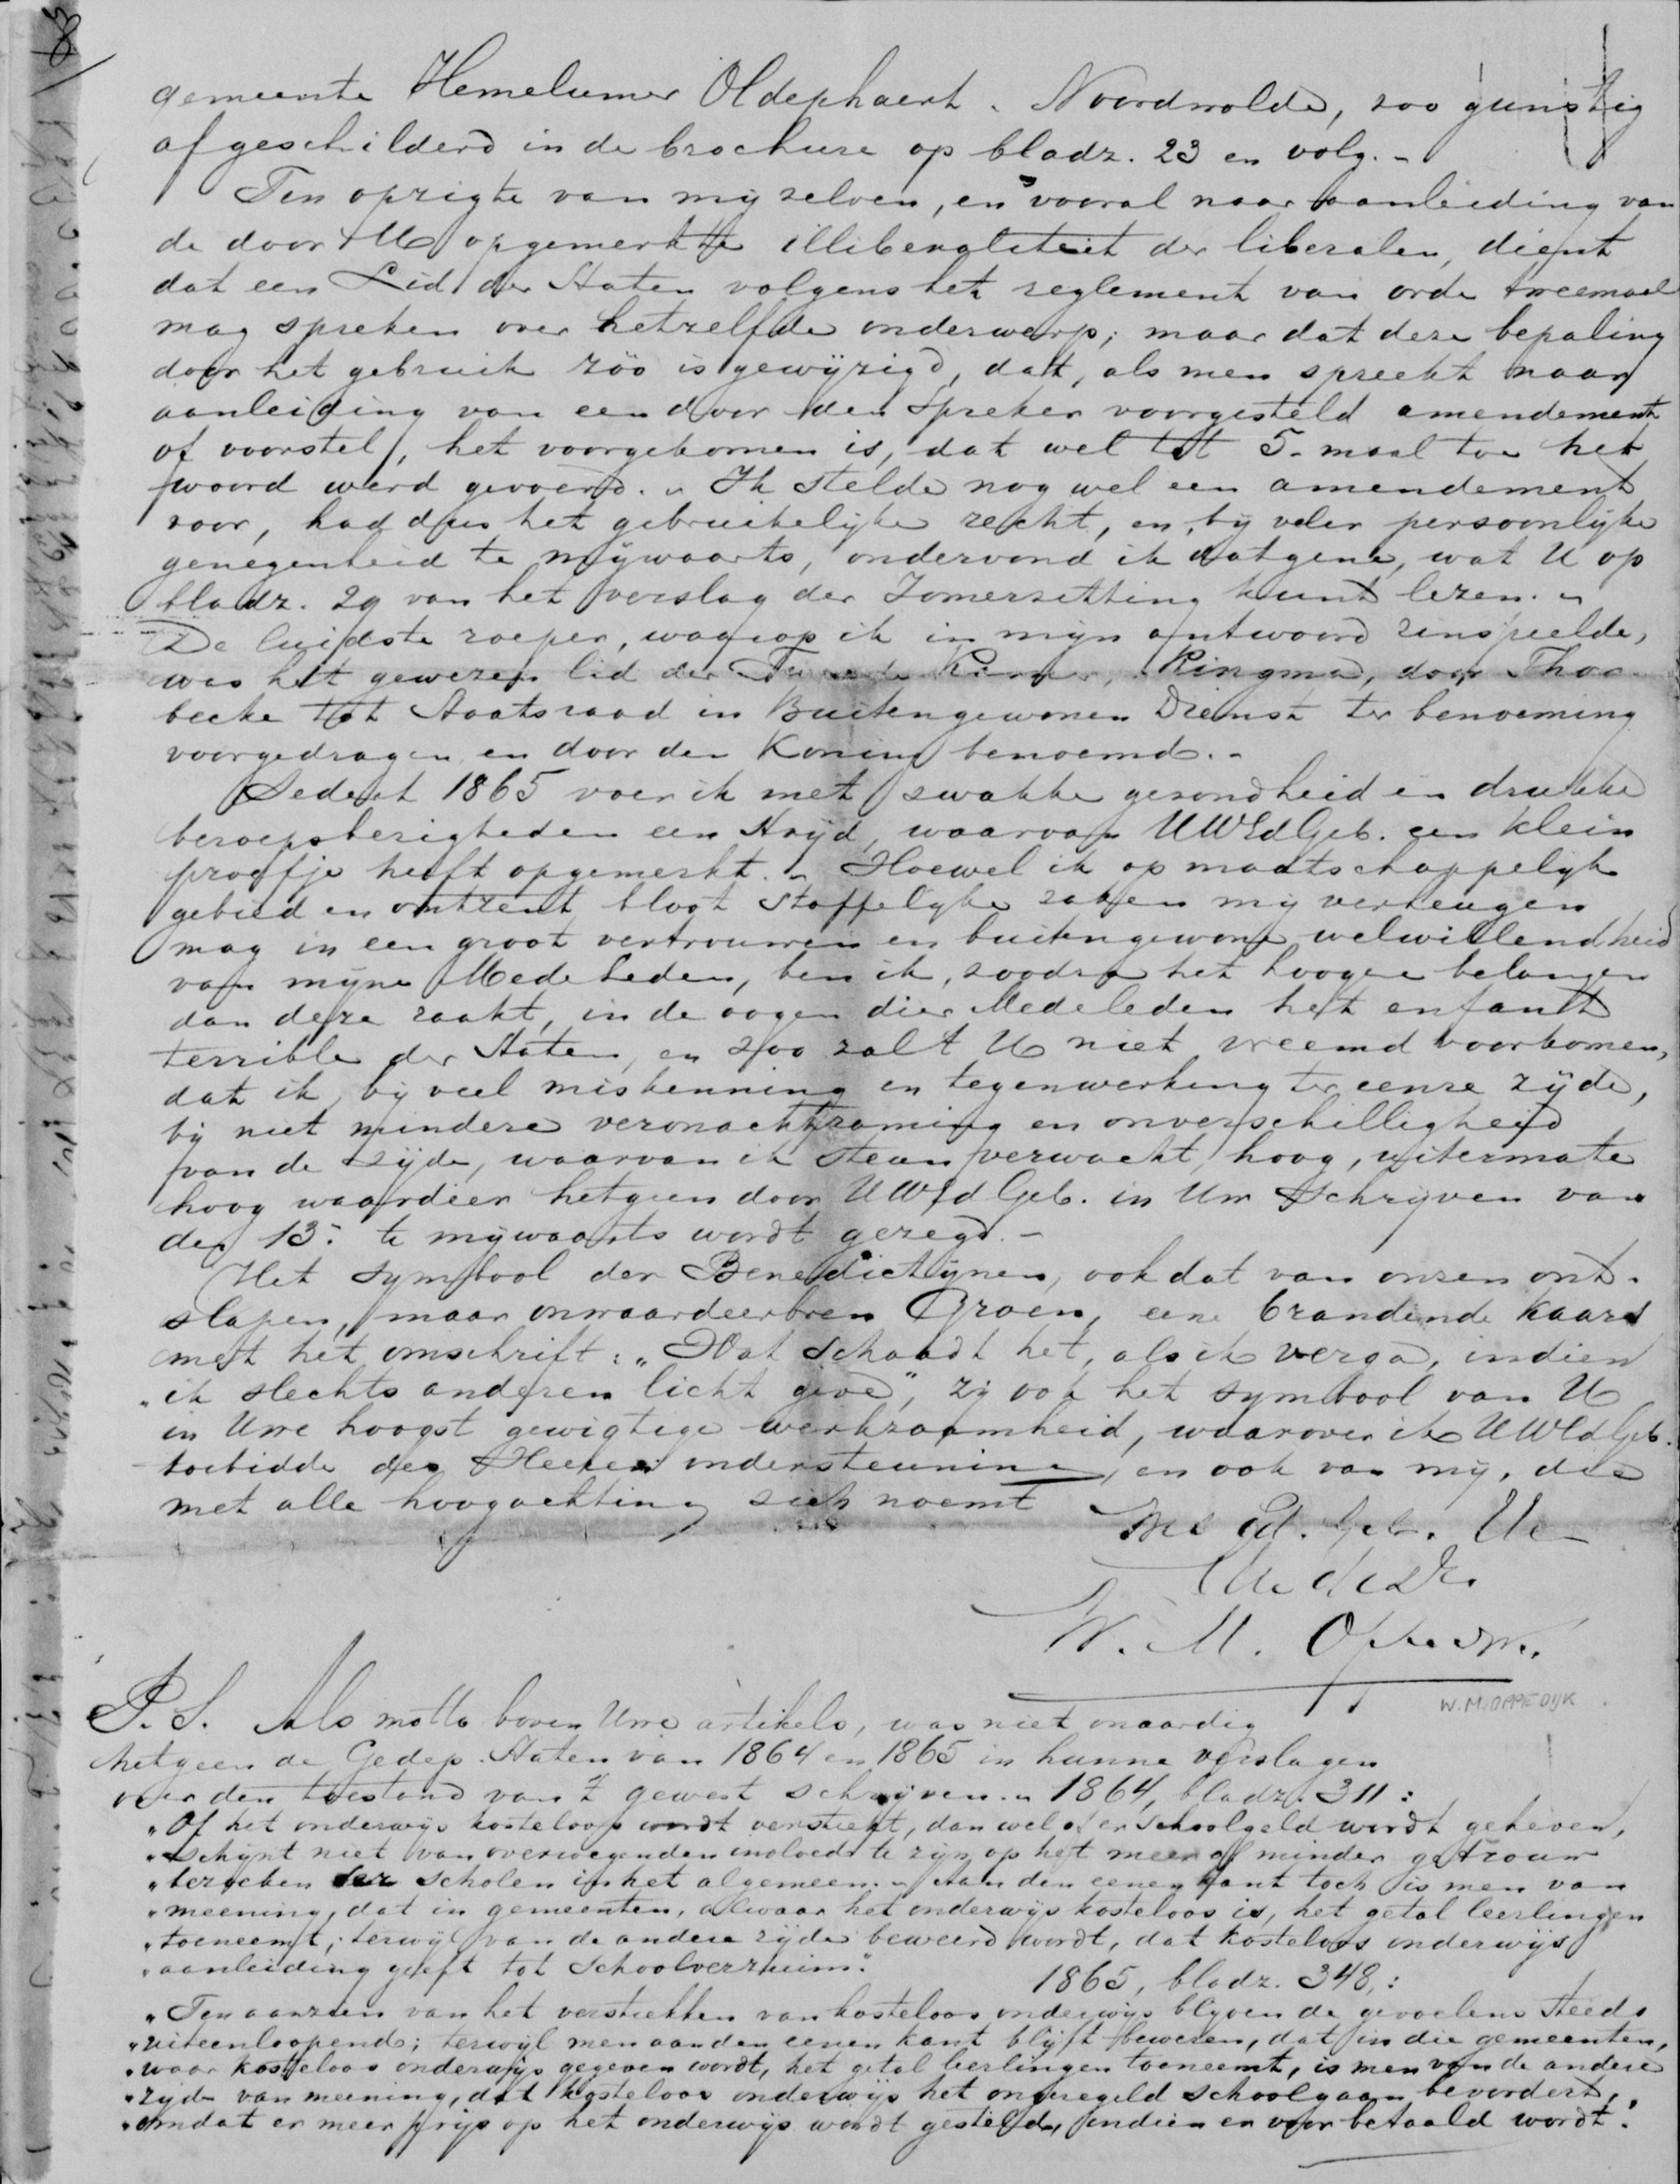 gemeente Hemelumer Oldephaert. Noordwolde, zoo gunstig
afgeschilderd in de brochure op bladz. 23 en volg. -
Ten opzigte van mij zelven, en vooral naar aanleiding van
de door U opgemerkte illiberaliteit der liberalen, dient
dat een Lid der Staten volgens het reglement van orde tweemaal
mag spreken over hetzelfde onderwerp; maar dat deze bepaling
door het gebruik zóó is gewijzigd, dat, als men spreekt naar
aanleiding van een door den Spreker voorgesteld amendement
of voorstel, het voorgekomen is, dat wel tot 5-maal toe het
woord werd gevoerd. - Ik stelde nog wel een amendement
voor, had dus het gebruikelijke recht, en, bij veler persoonlijke
genegenheid te mijwaarts, ondervond ik datgene, wat U op
bladz. 29 van het verslag der Zomerzitting kunt lezen. -
De luidste roeper, waarop ik in mijn antwoord zinspeelde,
was het gewezen lid der Tweede Kamer, Ringma, door Thor-
becke tot Staatsraad in Buitengewonen Dienst ter benoeming
voorgedragen en door den Koning benoemd. -
Sedert 1865 voer ik met zwakke gezondheid en drukke
beroepsbezigheden een strijd, waarvan UWEdGeb. een klein
proefje heeft opgemerkt. - Hoewel ik op maatschappelijk
gebied en omtrent bloot stoffelijke zaken mij verheugen
mag in een groot vertrouwen en buitengewone welwillendheid
van mijne Medeleden, ben ik, zoodra het hoogere belangen
dan deze raakt, in de oogen dier Medeleden het enfant
terrible der Staten, en zoo zal 't U niet vreemd voorkomen,
dat ik, bij veel miskenning en tegenwerking ter eenre zijde,
bij niet mindere veronachtzaming en onverschilligheid
van de zijde, waarvan ik steun verwacht, hoog, uitermate
hoog waardeer hetgeen door UWEdGeb. in Uw Schrijven van
den 13: te mijwaarts wordt gezegd. -
Het Symbool der Benedictijnen, ook dat van onzen ont-
slapen, maar onwaardeerbren Groen, eene brandende kaars
met het omschrift: „Wat schaadt het, als ik verga, indien
„ik slechts anderen licht geve", zij ook het symbool van U
in Uwe hoogst gewigtige werkzaamheid, waarover ik UWEdGeb.
toebidde des Heeren ondersteuning, en ook van mij, die
met alle hoogachting zich noemt
Ed. Geb.
W. M. Oppedijk.
W.M. OPPEDIJK
P. S. Als motto boven Uwe artikels, was niet onaardig
hetgeen de Gedep. Staten van 1864 en 1865 in hunne verslagen
over den toestand van 't gewest schrijven. - 1864, bladz. 311:
„Of het onderwijs kosteloos wordt verstrekt, dan wel of er schoolgeld wordt geheven,
„schijnt niet van overwegenden invloed te zijn op het meer of minder getrouw
„bezoeken der scholen in het algemeen. - Aan den eenen kant toch is men van
„meening, dat in gemeenten, alwaar het onderwijs kosteloos is, het getal leerlingen
„toeneemt; terwijl van de andere zijde beweerd wordt, dat kosteloos onderwijs
„aanleiding geeft tot Schoolverzuim."
1865, bladz. 348,:
„Ten aanzien van het verstrekken van kosteloos onderwijs blijven de gevoelens steeds
„uiteenloopend; terwijl men aan den eenen kant blijft beweren, dat in die gemeenten,
„waar kosteloos onderwijs gegeven wordt, het getal leerlingen toeneemt, is men van de andere
„zijde van meening, dat kosteloos onderwijs het ongeregeld schoolgaan bevordert,
„omdat er meer prijs op het onderwijs wordt gesteld, indien er voor betaald wordt."